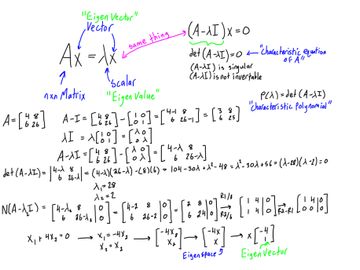 "Eigen Vector"
Vector
Ax = λx
same thing
(A-λI)x = 0
nxn Matrix
Scalar
"Eigen Value"
det(A-λI) = 0 ← "Characteristic equation of A"
(A-λI) is singular
(A-λI) is not invertable
P(λ) = det(A-λI)
"Characteristic Polynomial"
A = [4 8; 6 26] A-I = [4 8; 6 26] - [1 0; 0 1] = [4-1 8; 6 26-1] = [3 8; 6 25]
λI = λ[1 0; 0 1] = [λ 0; 0 λ]
A-λI = [4 8; 6 26] - [λ 0; 0 λ] = [4-λ 8; 6 26-λ]
det(A-λI) = |4-λ 8; 6 26-λ| = (4-λ)(26-λ) - (8)(6) = 104-30λ+λ²-48 = λ²-30λ+56 = (λ-28)(λ-2) = 0
λ₁ = 28
λ₂ = 2
N(A-λ₂I) = [4-λ₂ 8 | 0; 6 26-λ₂ | 0] = [4-2 8 | 0; 6 26-2 | 0] = [2 8 | 0; 6 24 | 0] R1/2 R2/6 [1 4 | 0; 1 4 | 0] R2-R1 [1 4 | 0; 0 0 | 0]
x₁ + 4x₂ = 0 → x₁ = -4x₂ x₂ = x₂ → [-4x₂; x₂] → [-4x; x] → x[-4; 1]
Eigenspace
Eigen Vector